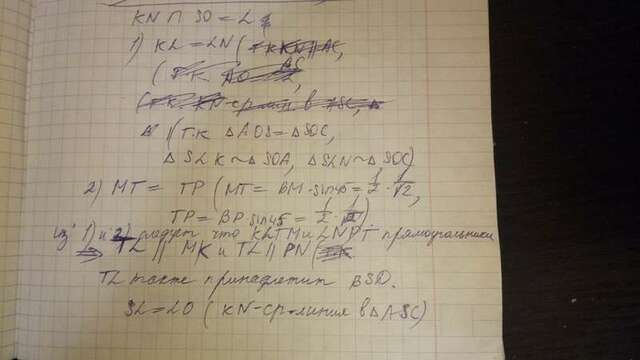 KN ∩ SO = L
1) KL = LN (
т.к ΔAOS = ΔSOC,
ΔSLK ~ ΔSOA, ΔSLN ~ ΔSOC)
2) MT = TP (MT = BM · sin45 = 1/2 · 1/√2,
TP = BP sin45 = 1/2 · 1/√2)
из 1) и 2) следует что KLTM и LNPT - прямоугольники
=> TL || MK и TL || PN
TL также принадлежит BSD.
SL = LO (KN - ср. линия в ΔASC)